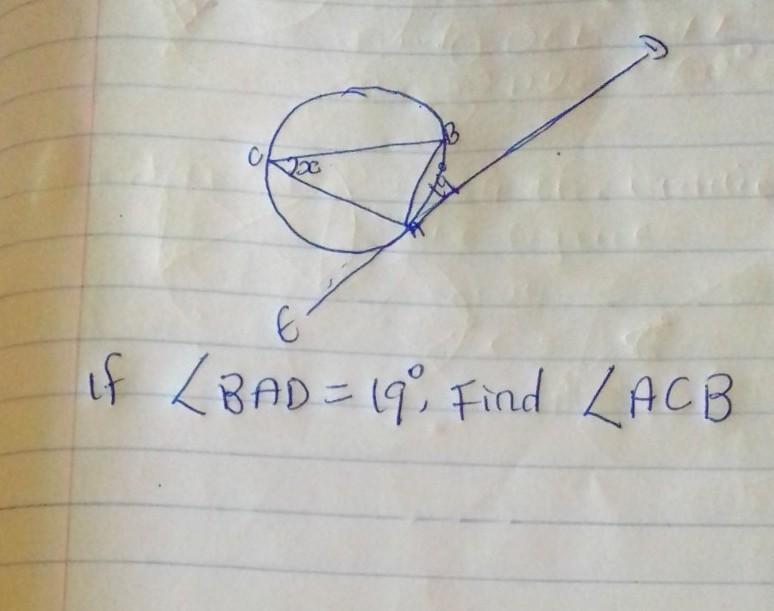 D
B
C
x
19°
A
E
If ∠BAD = 19°, Find ∠ACB